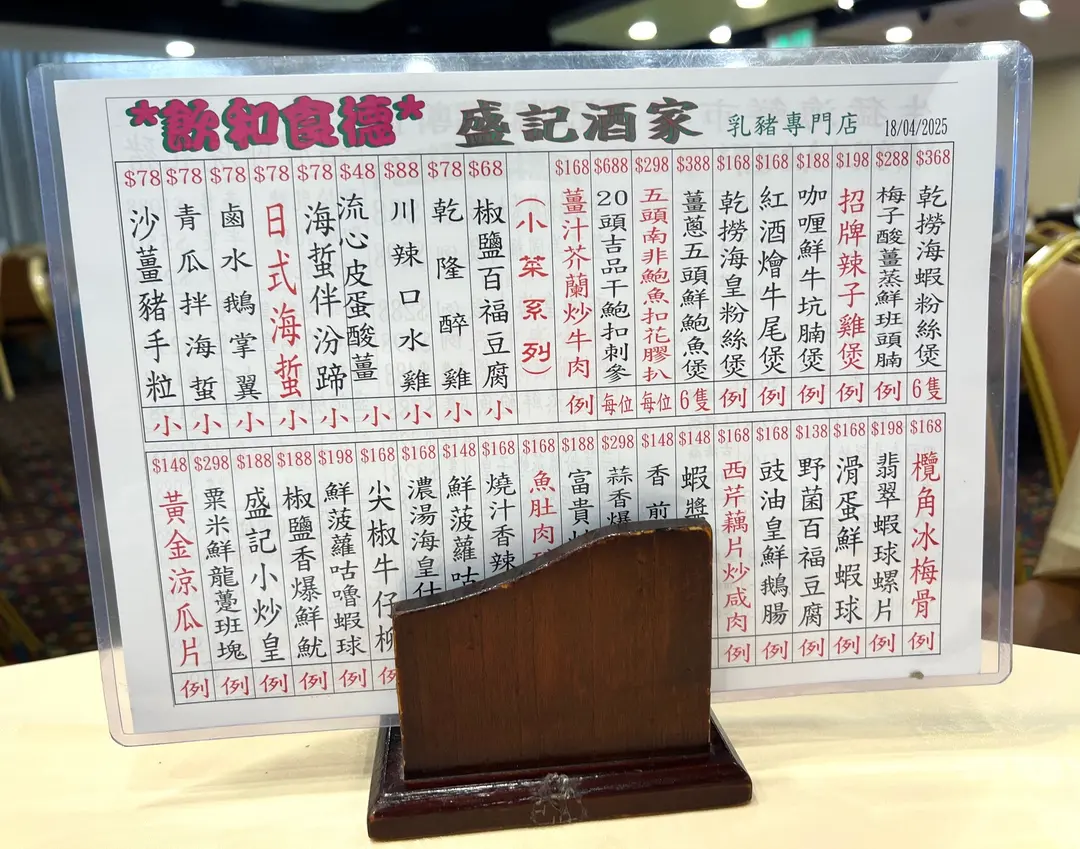 *飲和食德* 盛記酒家 乳豬專門店 18/04/2025
$368 乾撈海蝦粉絲煲 6隻
$288 梅子酸薑蒸鮮班頭腩 例
$198 招牌辣子雞煲 例
$188 咖喱鮮牛坑腩煲 例
$168 紅酒燴牛尾煲 例
$168 乾撈海皇粉絲煲 例
$388 薑蔥五頭鮮鮑魚煲 6隻
$298 五頭南非鮑魚扣花膠扒 每位
$688 20頭吉品干鮑扣刺參 每位
$168 薑汁芥蘭炒牛肉 例
(小菜系列)
$68 椒鹽百福豆腐 小
$78 乾隆醉雞 小
$88 川辣口水雞 小
$48 流心皮蛋酸薑 小
$78 海蜇伴汾蹄 小
$78 日式海蜇 小
$78 鹵水鵝掌翼 小
$78 青瓜拌海蜇 小
$78 沙薑豬手粒 小
$168 欖角冰梅骨 例
$198 翡翠蝦球螺片 例
$168 滑蛋鮮蝦球 例
$138 野菌百福豆腐 例
$168 豉油皇鮮鵝腸 例
$168 西芹藕片炒咸肉 例
$148 蝦醬
$148 香煎
$298 蒜香爆
$188 富貴
$168 魚肚肉
$168 燒汁香辣
$148 鮮菠蘿咕
$168 濃湯海皇
$168 尖椒牛仔柳 例
$198 鮮菠蘿咕嚕蝦球 例
$188 椒鹽香爆鮮魷 例
$188 盛記小炒皇 例
$298 粟米鮮龍躉班塊 例
$148 黃金涼瓜片 例